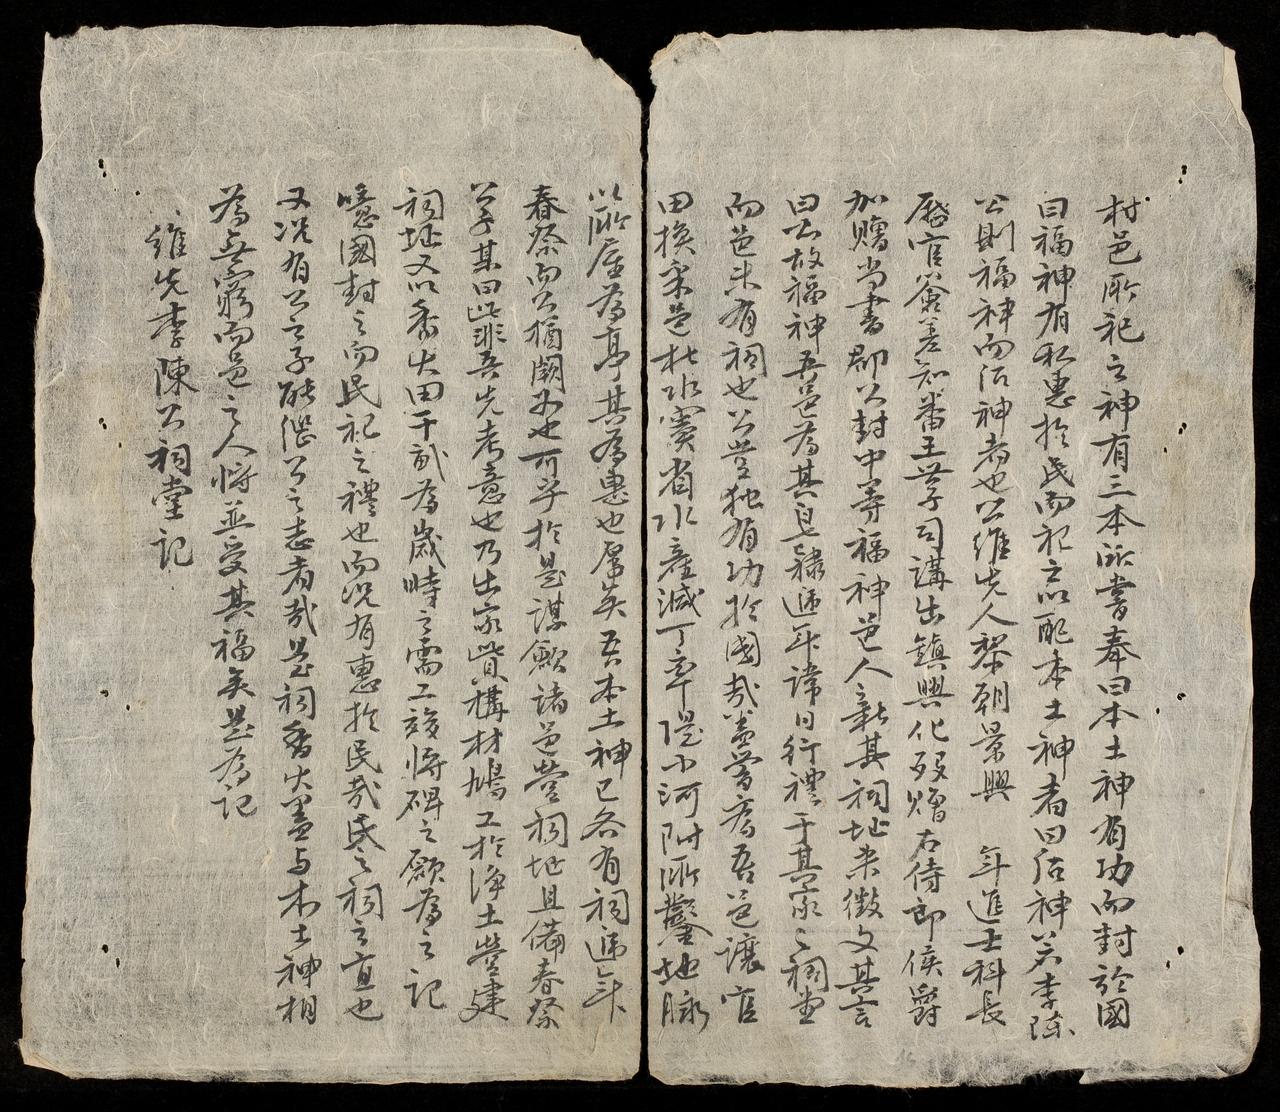 村邑所祀之神有三本所書奉曰本土神有功而封於國
曰福神有私惠於民而祀之以配本土神者曰后神若李陳
公則福神而后神者也公維先人黎朝景興 年進士科長
歷官簽差知番王世子司講出鎮興化歿贈右侍郎侯爵
加贈尚書郡公封中等福神邑人新其祠址来徵文其言
曰公故福神吾邑為其皂隸遞年諱日行禮于其家之祠堂
而邑未有祠也公豈独有功於國哉盖嘗為吾邑讓官
田換采邑杜水竇省水產減丁率隄小河附所鑿地脉
以所居為亭其為惠也厚矣吾本土神已各有祠遞年
春祭而公猶闕如也可乎於是謀願諸邑營祠址且備春祭
公子某曰此非吾先考意也乃出家貲構材鳩工於淨土營建
祠址又以香火田干畝為歲時之需工竣將碑之願為之記
噫國封之而民祀之禮也而況有惠於民哉民之祠之宜也
又况有公之子能繼公之志者哉是祠香火盖与本土神相
為無窮而邑之人將並受其福矣是為記
維先李陳公祠堂記